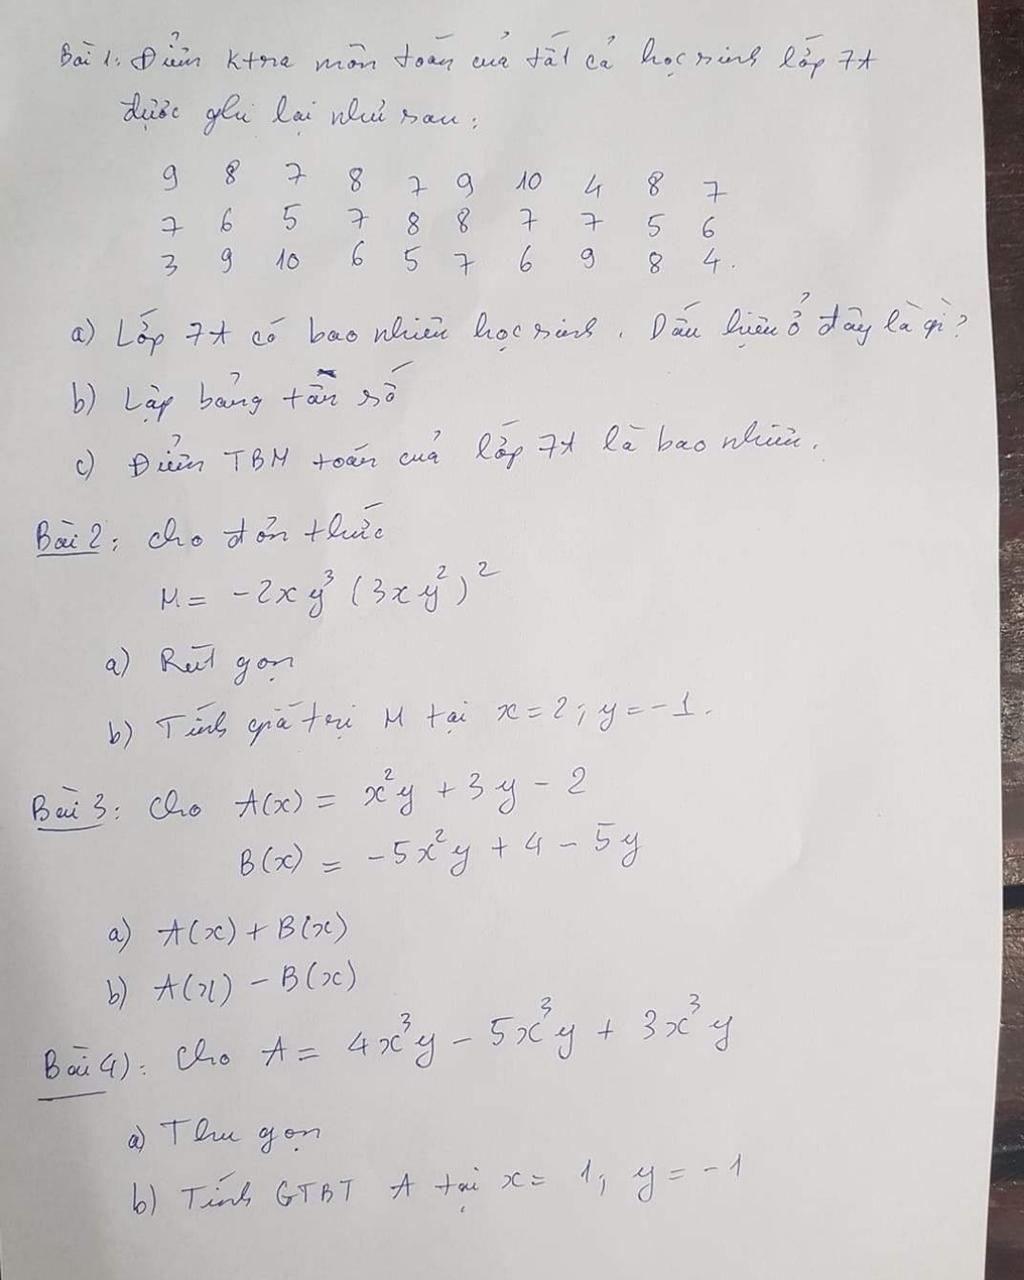 Bài 1: Điểm Ktra môn toán của tất cả học sinh lớp 7A
được ghi lại như sau:
9 8 7 8 7 9 10 4 8 7
7 6 5 7 8 8 7 7 5 6
3 9 10 6 5 7 6 9 8 4.
a) Lớp 7A có bao nhiêu học sinh. Dấu hiệu ở đây là gì?
b) Lập bảng tần số
c) Điểm TBM toán của lớp 7A là bao nhiêu.
Bài 2: Cho đơn thức
M = -2xy³(3xy²)²
a) Rút gọn
b) Tính giá trị M tại x = 2; y = -1.
Bài 3: Cho A(x) = x²y + 3y - 2
B(x) = -5x²y + 4 - 5y
a) A(x) + B(x)
b) A(x) - B(x)
Bài 4): Cho A = 4x³y - 5x³y + 3x³y
a) Thu gọn
b) Tính GTBT A tại x = 1; y = -1